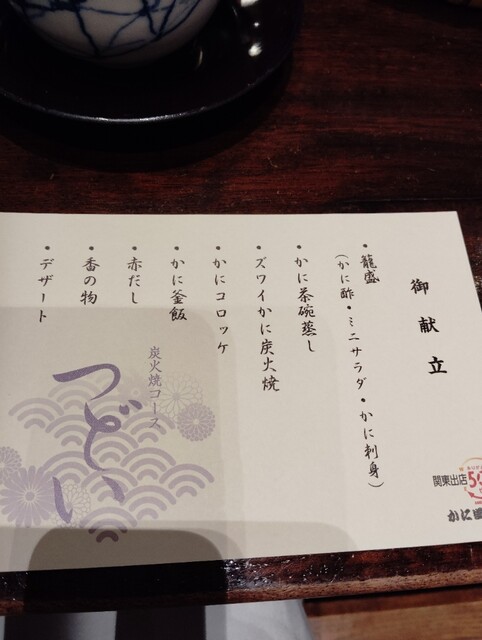 御献立
・籠盛
(かに酢・ミニサラダ・かに刺身)
・かに茶碗蒸し
・ズワイかに炭火焼
・かにコロッケ
・かに釜飯
・赤だし
・香の物
・デザート
炭火焼コース
つどい
関東出店
かに